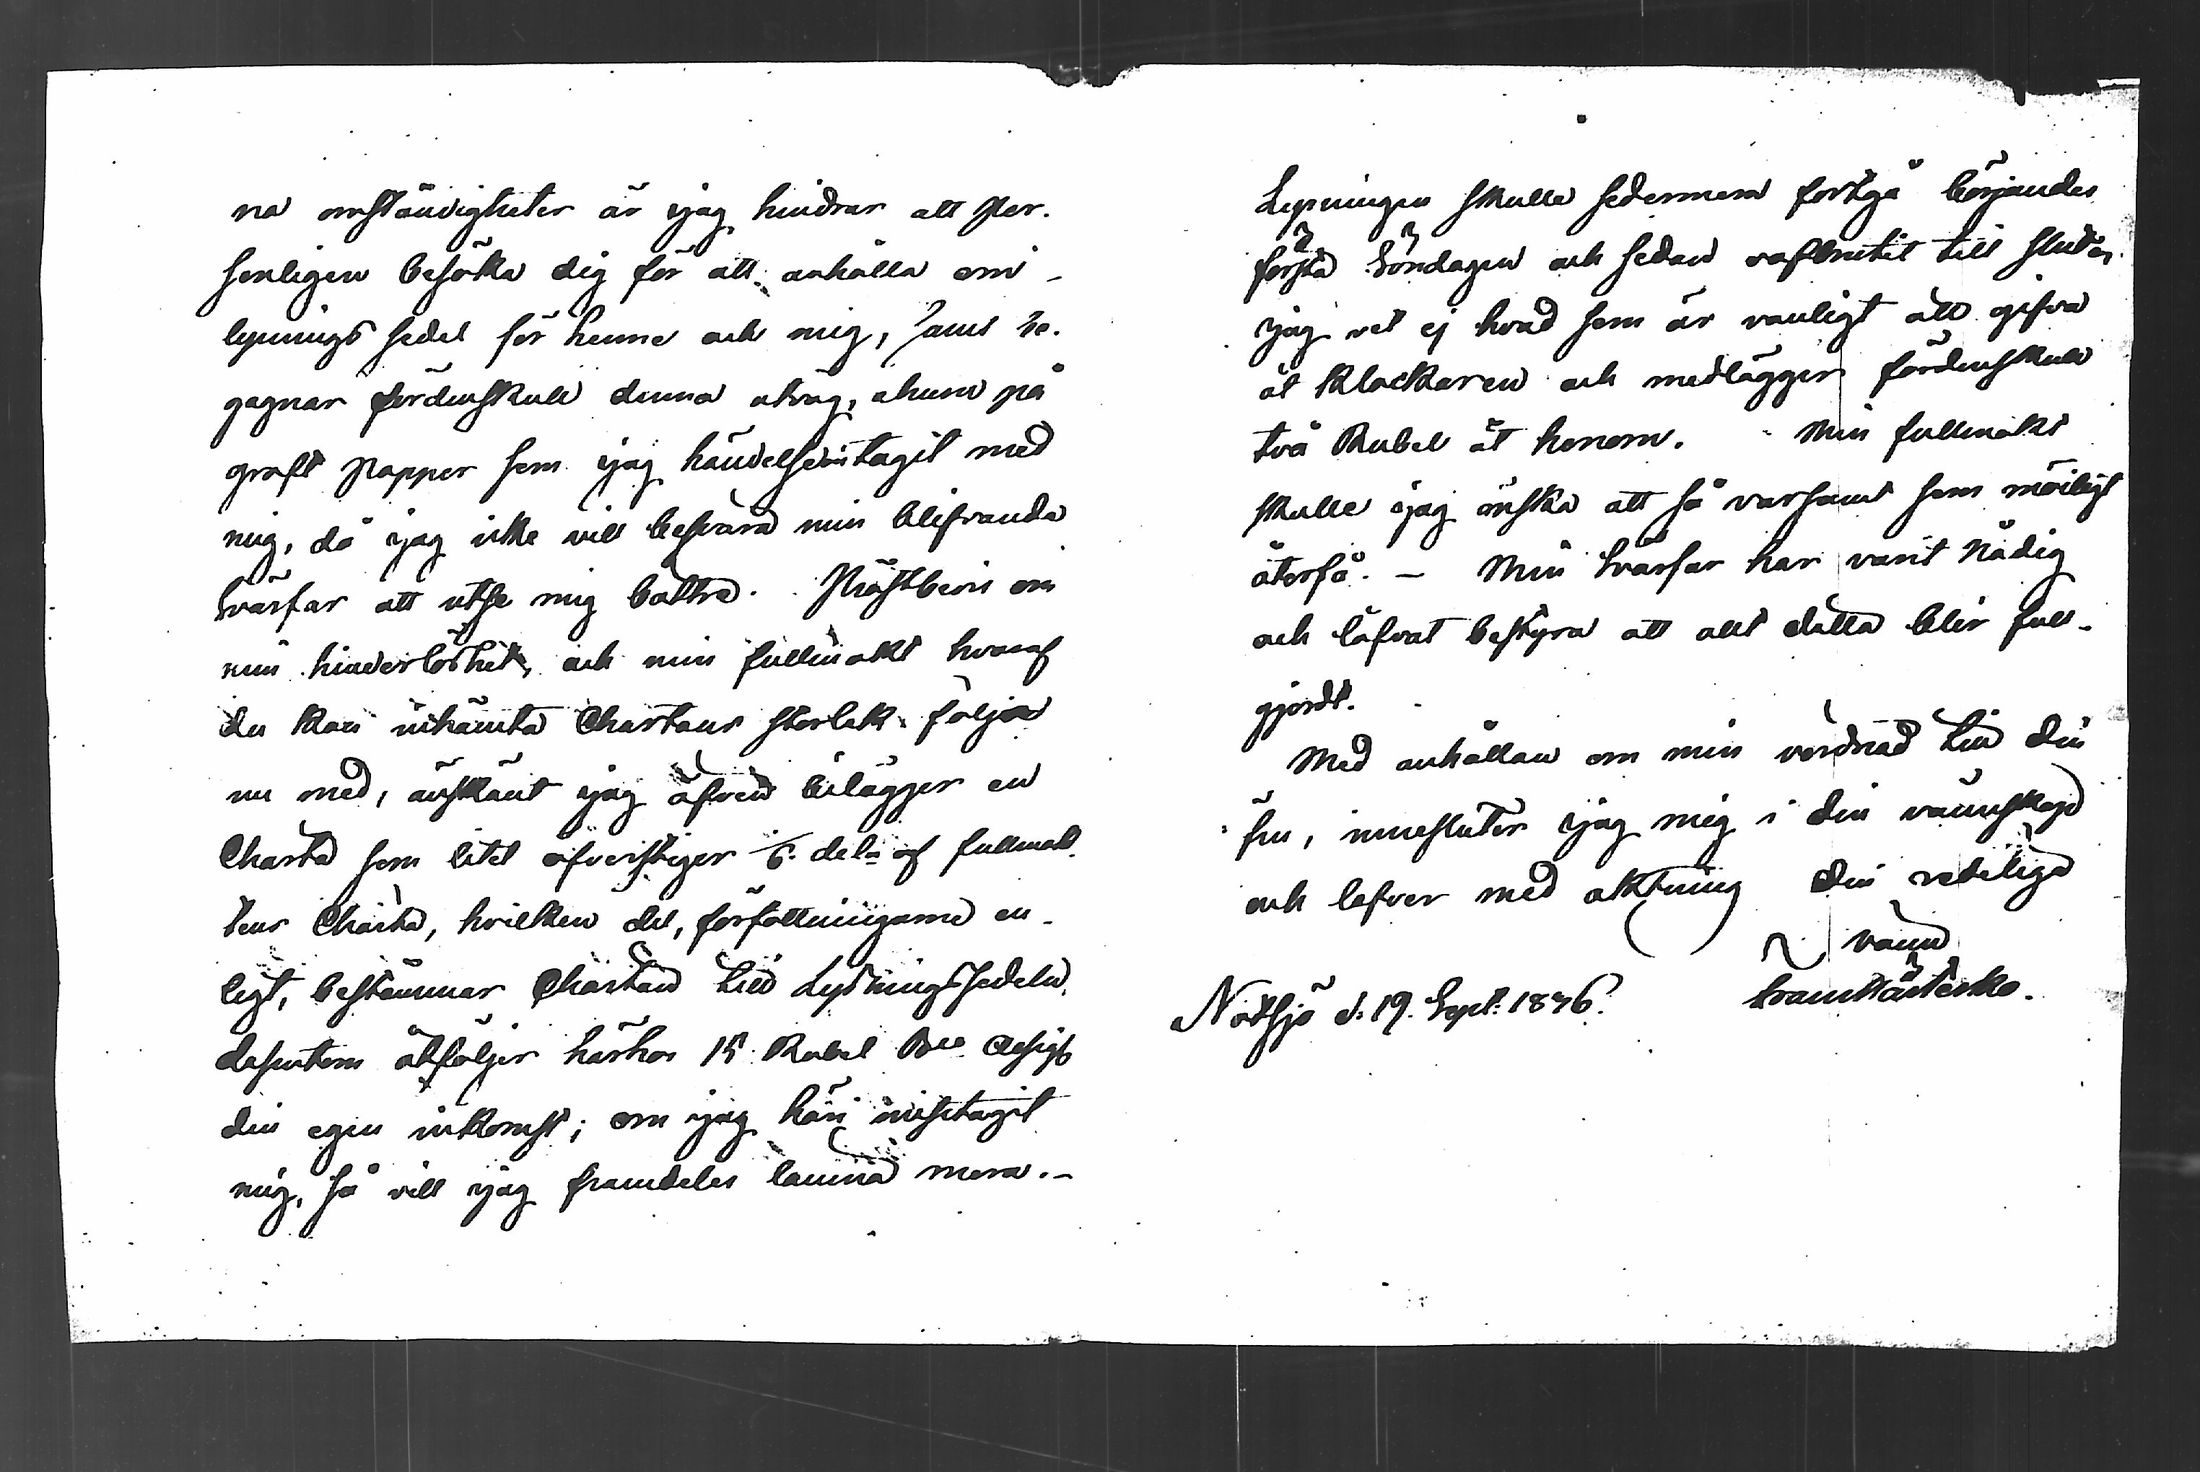 na omständigheter är jag hindrar att per-
sonligen besöka dig för att anhålla om
lysnings sedel för henne och mig, samt be-
gagnar fördenskull denna utväg, ehuru på
groft papper som jag händelsevis tagit med
mig, då jag icke vill besvära min blifvande
Svärfar att utse mig bättre. Prästbevis om
min hinderlöshet, och min fullmakt hvaraf
du kan inhämta Chartans storlek följa
nu med, änskönt jag äfven bilägger en
Charta som litet öfverstiger 1/6 del af fullmak-
tens Charta, hvilken del, författningarne en-
ligt, bestämmer Chartan till Lysningssedeln,
dessutom åtföljer härhos 15 Rubel Bco Assig
din egen inkomst; om jag häri misstagit
mig, så vill jag framdeles lämna mera. -
Lysningen skulle sedermera fortgå börjandes
första Söndagen och sedan oafbrutit till slut.
jag vet ej hvad som är vanligt att gifva
åt Klockaren och medlägger fördenskull
två Rubel åt honom. Min fullmakt
skulle jag önska att så varsamt som möiligt
återfå. - Min Svärfar har varit nådig
och låfvat bestyra att allt detta blir full-
gjordt.
Med anhållan om min vördnad till din
fru, innesluter jag mig i din vännskap
och lefver med aktning din redeliga
vänn
Notsjö d. 19. Sept. 1836.